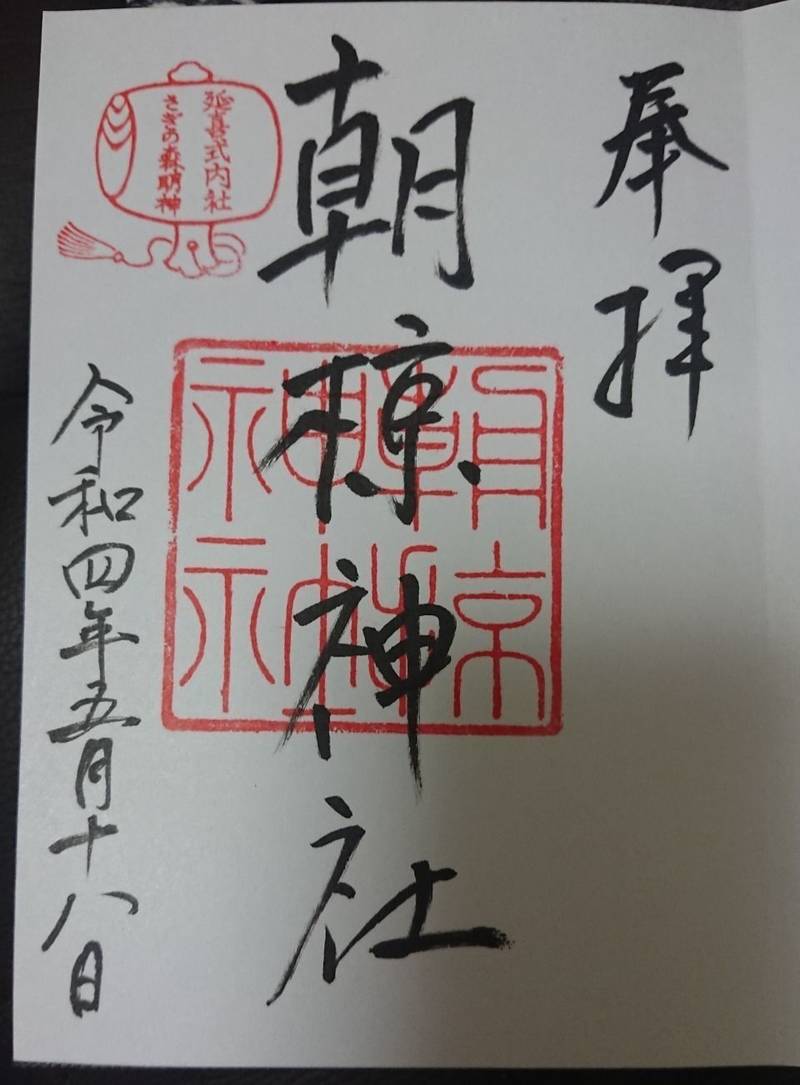 奉拝
朝椋神社
延喜式内社
さぎの森明神
令和四年五月十八日